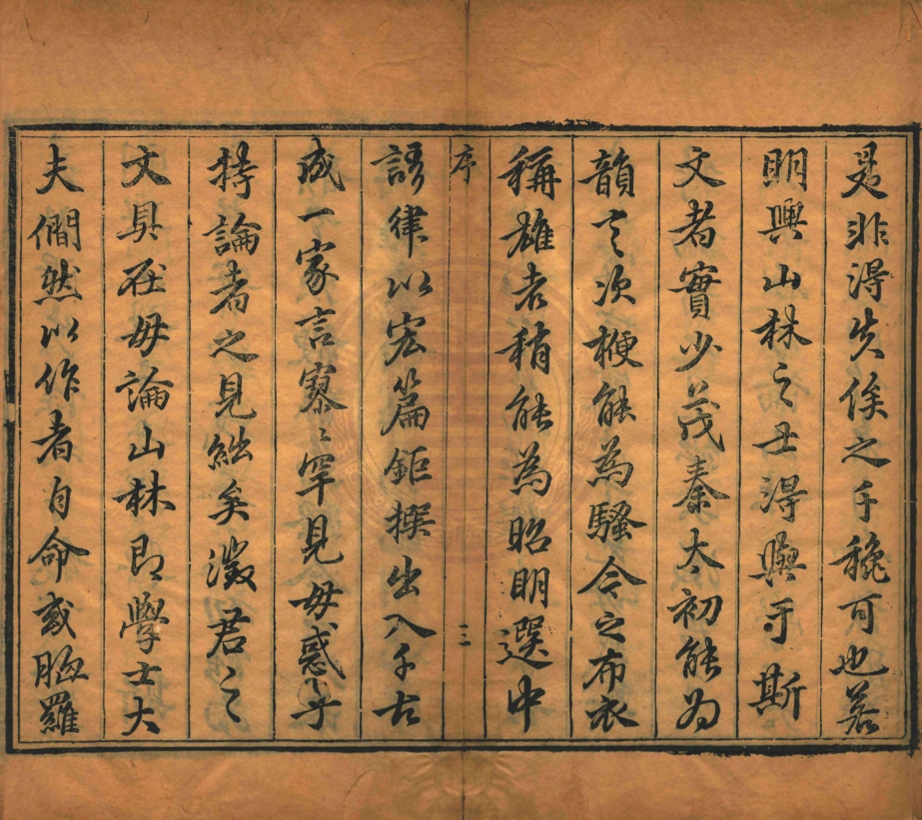 是非得失俟之千穐可也若
明興山林之士得與于斯
文者實少茂秦太初能为
韻言次楩能為騷今之布衣
稱雄者稍能為昭明選中
序
三
語律以宏篇鉅撰出入千古
成一家言寥〻罕見毋惑乎
持論者之見絀矣澂君之
文具在毋論山林即學士大
夫僩然以作者自命或胸羅